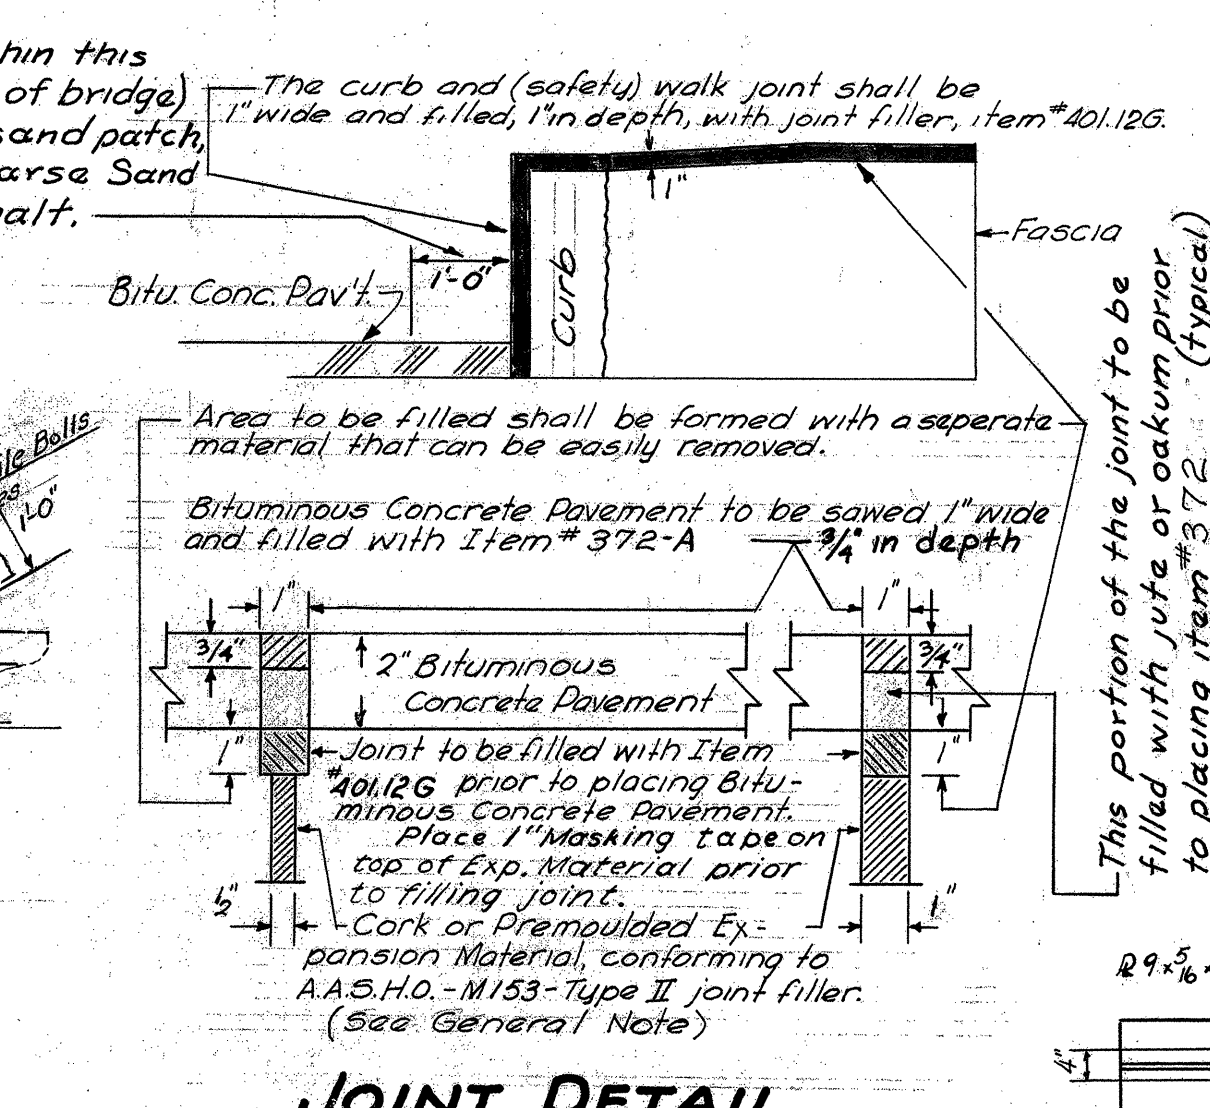 this
of bridge)
sand patch,
Sand
The curb and (safety) walk joint shall be
1" wide and filled, 1" in depth, with joint filler, item #401.12G.
1"
Fascia
1'-0"
Bitu. Conc. Pav't.
Curb
Area to be filled shall be formed with a seperate
material that can be easily removed.
Bolts
1'-0"
Bituminous Concrete Pavement to be sawed 1" wide
and filled with Item # 372-A 3/4" in depth
1"
1"
3/4"
3/4"
2" Bituminous
Concrete Pavement
1"
1"
Joint to be filled with Item
#401.12G prior to placing Bitu-
minous Concrete Pavement.
Place 1" Masking tape on
top of Exp. Material prior
to filling joint.
1/2"
1"
Cork or Premoulded Ex-
pansion Material, conforming to
A.A.S.H.O. - M153 - Type II joint filler.
(See General Note)
This portion of the joint to be
filled with jute or oakum prior
to placing item #372 (typical)
9 x 5/16 x
4"
JOINT DETAIL